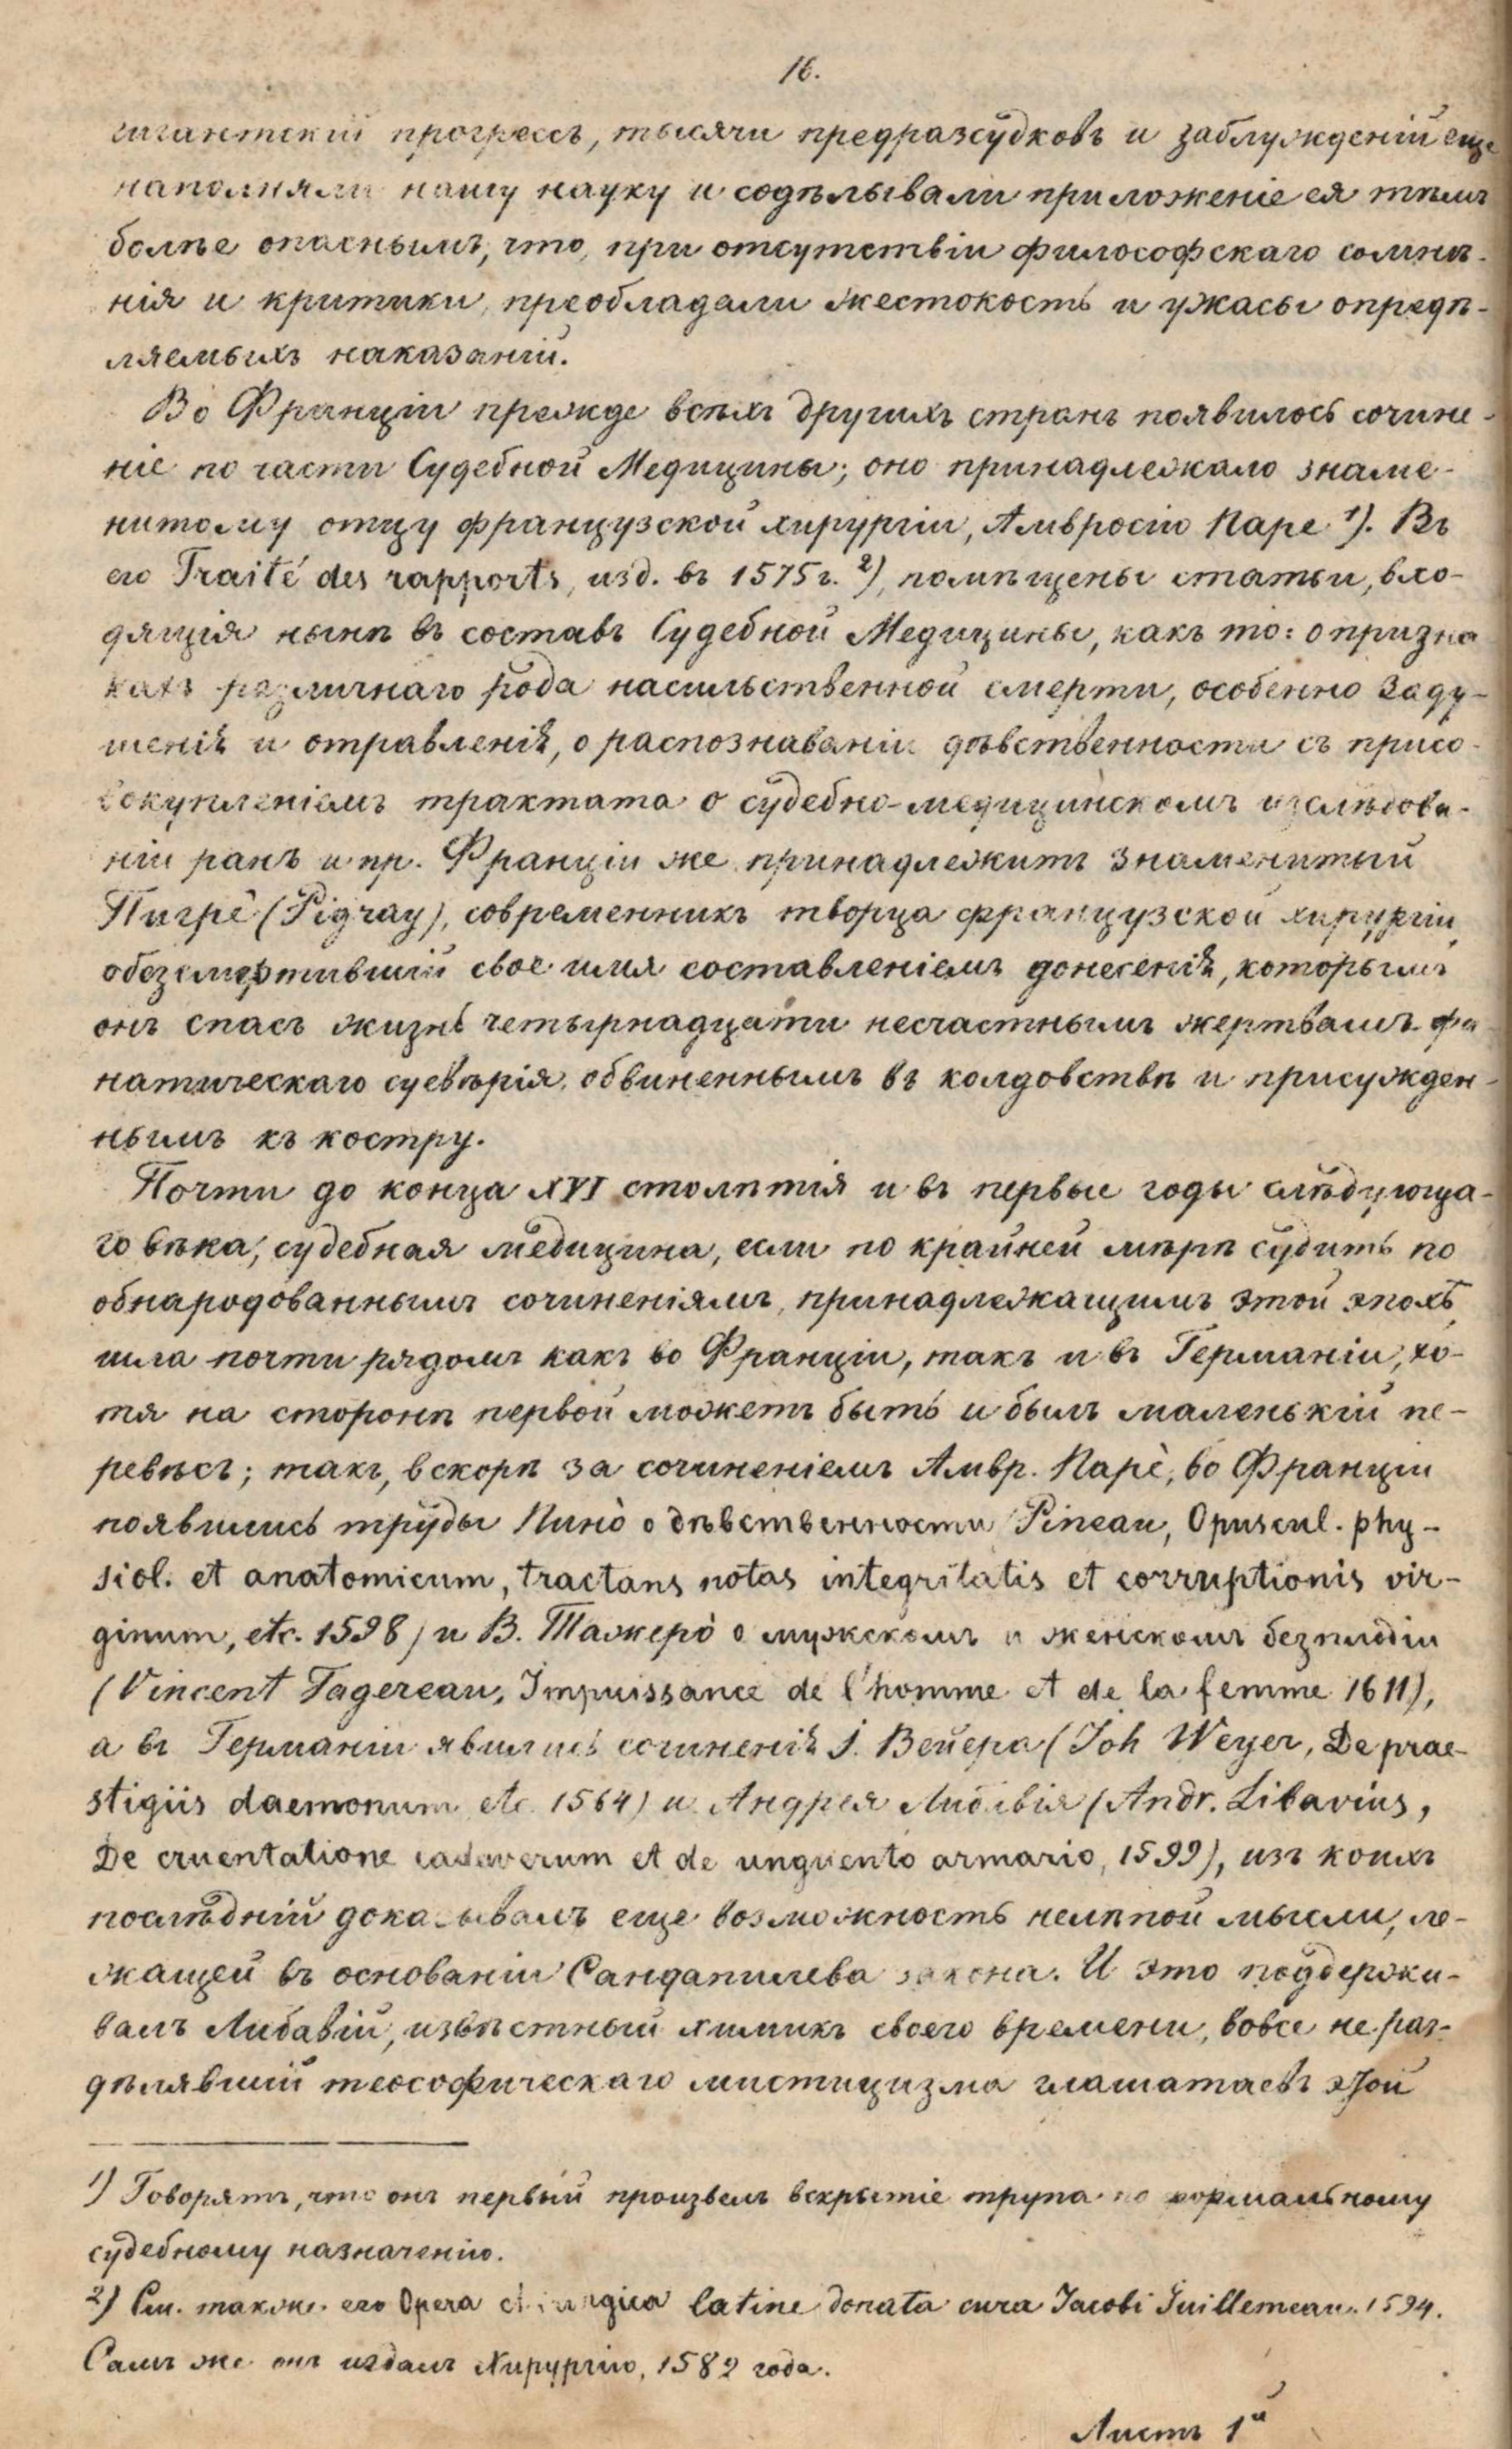 16.
гигантскій прогрессъ, тысячи предразсудковъ и заблужденій еще
наполняли нашу науку и содѣлывали приложеніе ея тѣмъ
болѣе опаснымъ, что, при отсутствіи философскаго сомнѣ-
нія и критики, преобладали жестокость и ужасы опредѣ-
ляемыхъ наказаній.
Во Франціи прежде всѣхъ другихъ странъ появилось сочине-
ніе по части Судебной Медицины; оно принадлежало знаме-
нитому отцу французской хирургіи, Амвросію Паре 1). Въ
его Traité des rapports, изд. въ 1575 г. 2), помѣщены статьи, вхо-
дящія нынѣ въ составъ Судебной Медицины, какъ то: о призна
кахъ различнаго рода насильственной смерти, особенно заду-
шенія и отравленія, о распознаваніи дѣвственности съ присо-
вокупленіемъ трактата о судебно-медицинскомъ изслѣдова-
ніи ранъ и пр. Франціи же принадлежитъ знаменитый
Пигре (Pigray), современникъ творца французской хирургіи,
обезсмертившій свое имя составленіемъ донесенія, которымъ
онъ спасъ жизнь четырнадцати несчастнымъ жертвамъ фа
натическаго суевѣрія, обвиненнымъ въ колдовствѣ и присужден-
нымъ къ костру.
Почти до конца XVI столѣтія и въ первые годы слѣдующа-
го вѣка, судебная медицина, если по крайней мѣрѣ судить по
обнародованнымъ сочиненіямъ, принадлежащимъ этой эпохѣ,
шла почти рядомъ какъ во Франціи, такъ и въ Германіи, хо-
тя на сторонѣ первой можетъ быть и былъ маленькій пе-
ревѣсъ; такъ, вскорѣ за сочиненіемъ Амвр. Паре, во Франціи
появились труды Пино о дѣвственности Pineau, Opuscul. phy-
siol. et anatomicum, tractans notas integritatis et corruptionis vir-
ginum, etc. 1598) и В. Тажеро о мужскомъ и женскомъ безплодіи
(Vincent Tagereau, Impuissance de l'homme et de la femme 1611),
а въ Германіи явились сочиненія І. Вейера (Joh Weyer, De prae-
stigiis daemonum etc. 1564) и Андрея Либавія (Andr. Libavius,
De cruentatione cadaverum et de unguento armario, 1599), изъ коихъ
послѣдній доказывалъ еще возможность нелѣпой мысли, ле-
жащей въ основаніи Сандапилева закона. И это поддержи-
валъ Либавій, извѣстный химикъ своего времени, вовсе не раз-
дѣлявшій теософическаго мистицизма глашатаевъ этой
1) Говорятъ, что онъ первый произвелъ вскрытіе трупа по формальному
судебному назначенію.
2) См. также его Opera chirurgica latine donata cura Jacobi Guillemeau. 1594.
Самъ же онъ издалъ Хирургію, 1582 года.
Листъ 1й